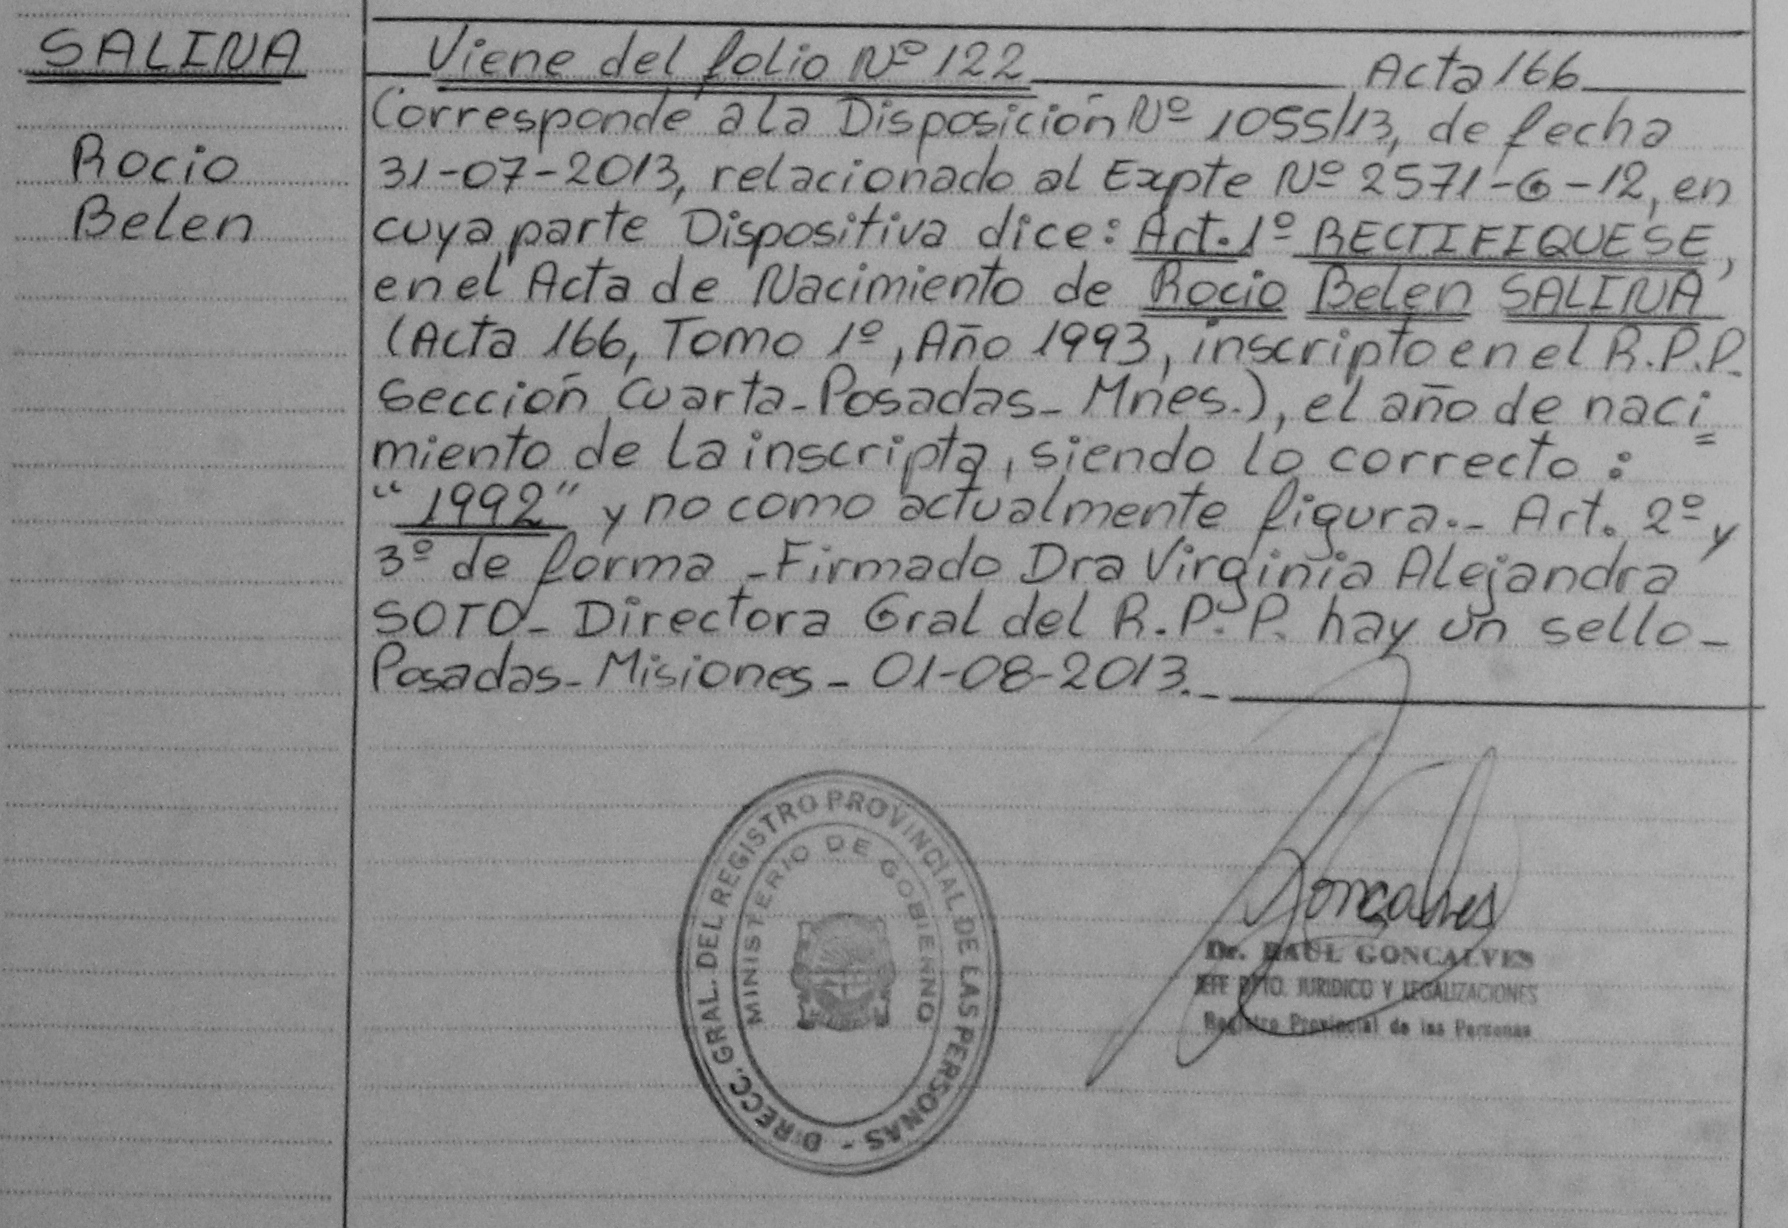 SALINA
Rocio
Belen
Viene del folio Nº 122 Acta 166
Corresponde a la Disposición Nº 1055/13, de fecha
31-07-2013, relacionado al Expte Nº 2571-G-12, en
cuya parte Dispositiva dice: Art. 1º RECTIFIQUESE,
en el Acta de Nacimiento de Rocio Belen SALINA
(Acta 166, Tomo 1º, Año 1993, inscripto en el R.P.P.
Sección Cuarta-Posadas-Mnes.), el año de naci=
miento de la inscripta, siendo lo correcto:
"1992" y no como actualmente figura.- Art. 2º y
3º de forma - Firmado Dra Virginia Alejandra
SOTO - Directora Gral del R.P.P. hay un sello -
Posadas - Misiones - 01-08-2013.-
DIRECC. GRAL. DEL REGISTRO PROVINCIAL DE LAS PERSONAS -
MINISTERIO DE GOBIERNO
Goncalves
Dr. RAUL GONCALVES
JEFE DPTO. JURIDICO Y LEGALIZACIONES
Registro Provincial de las Personas